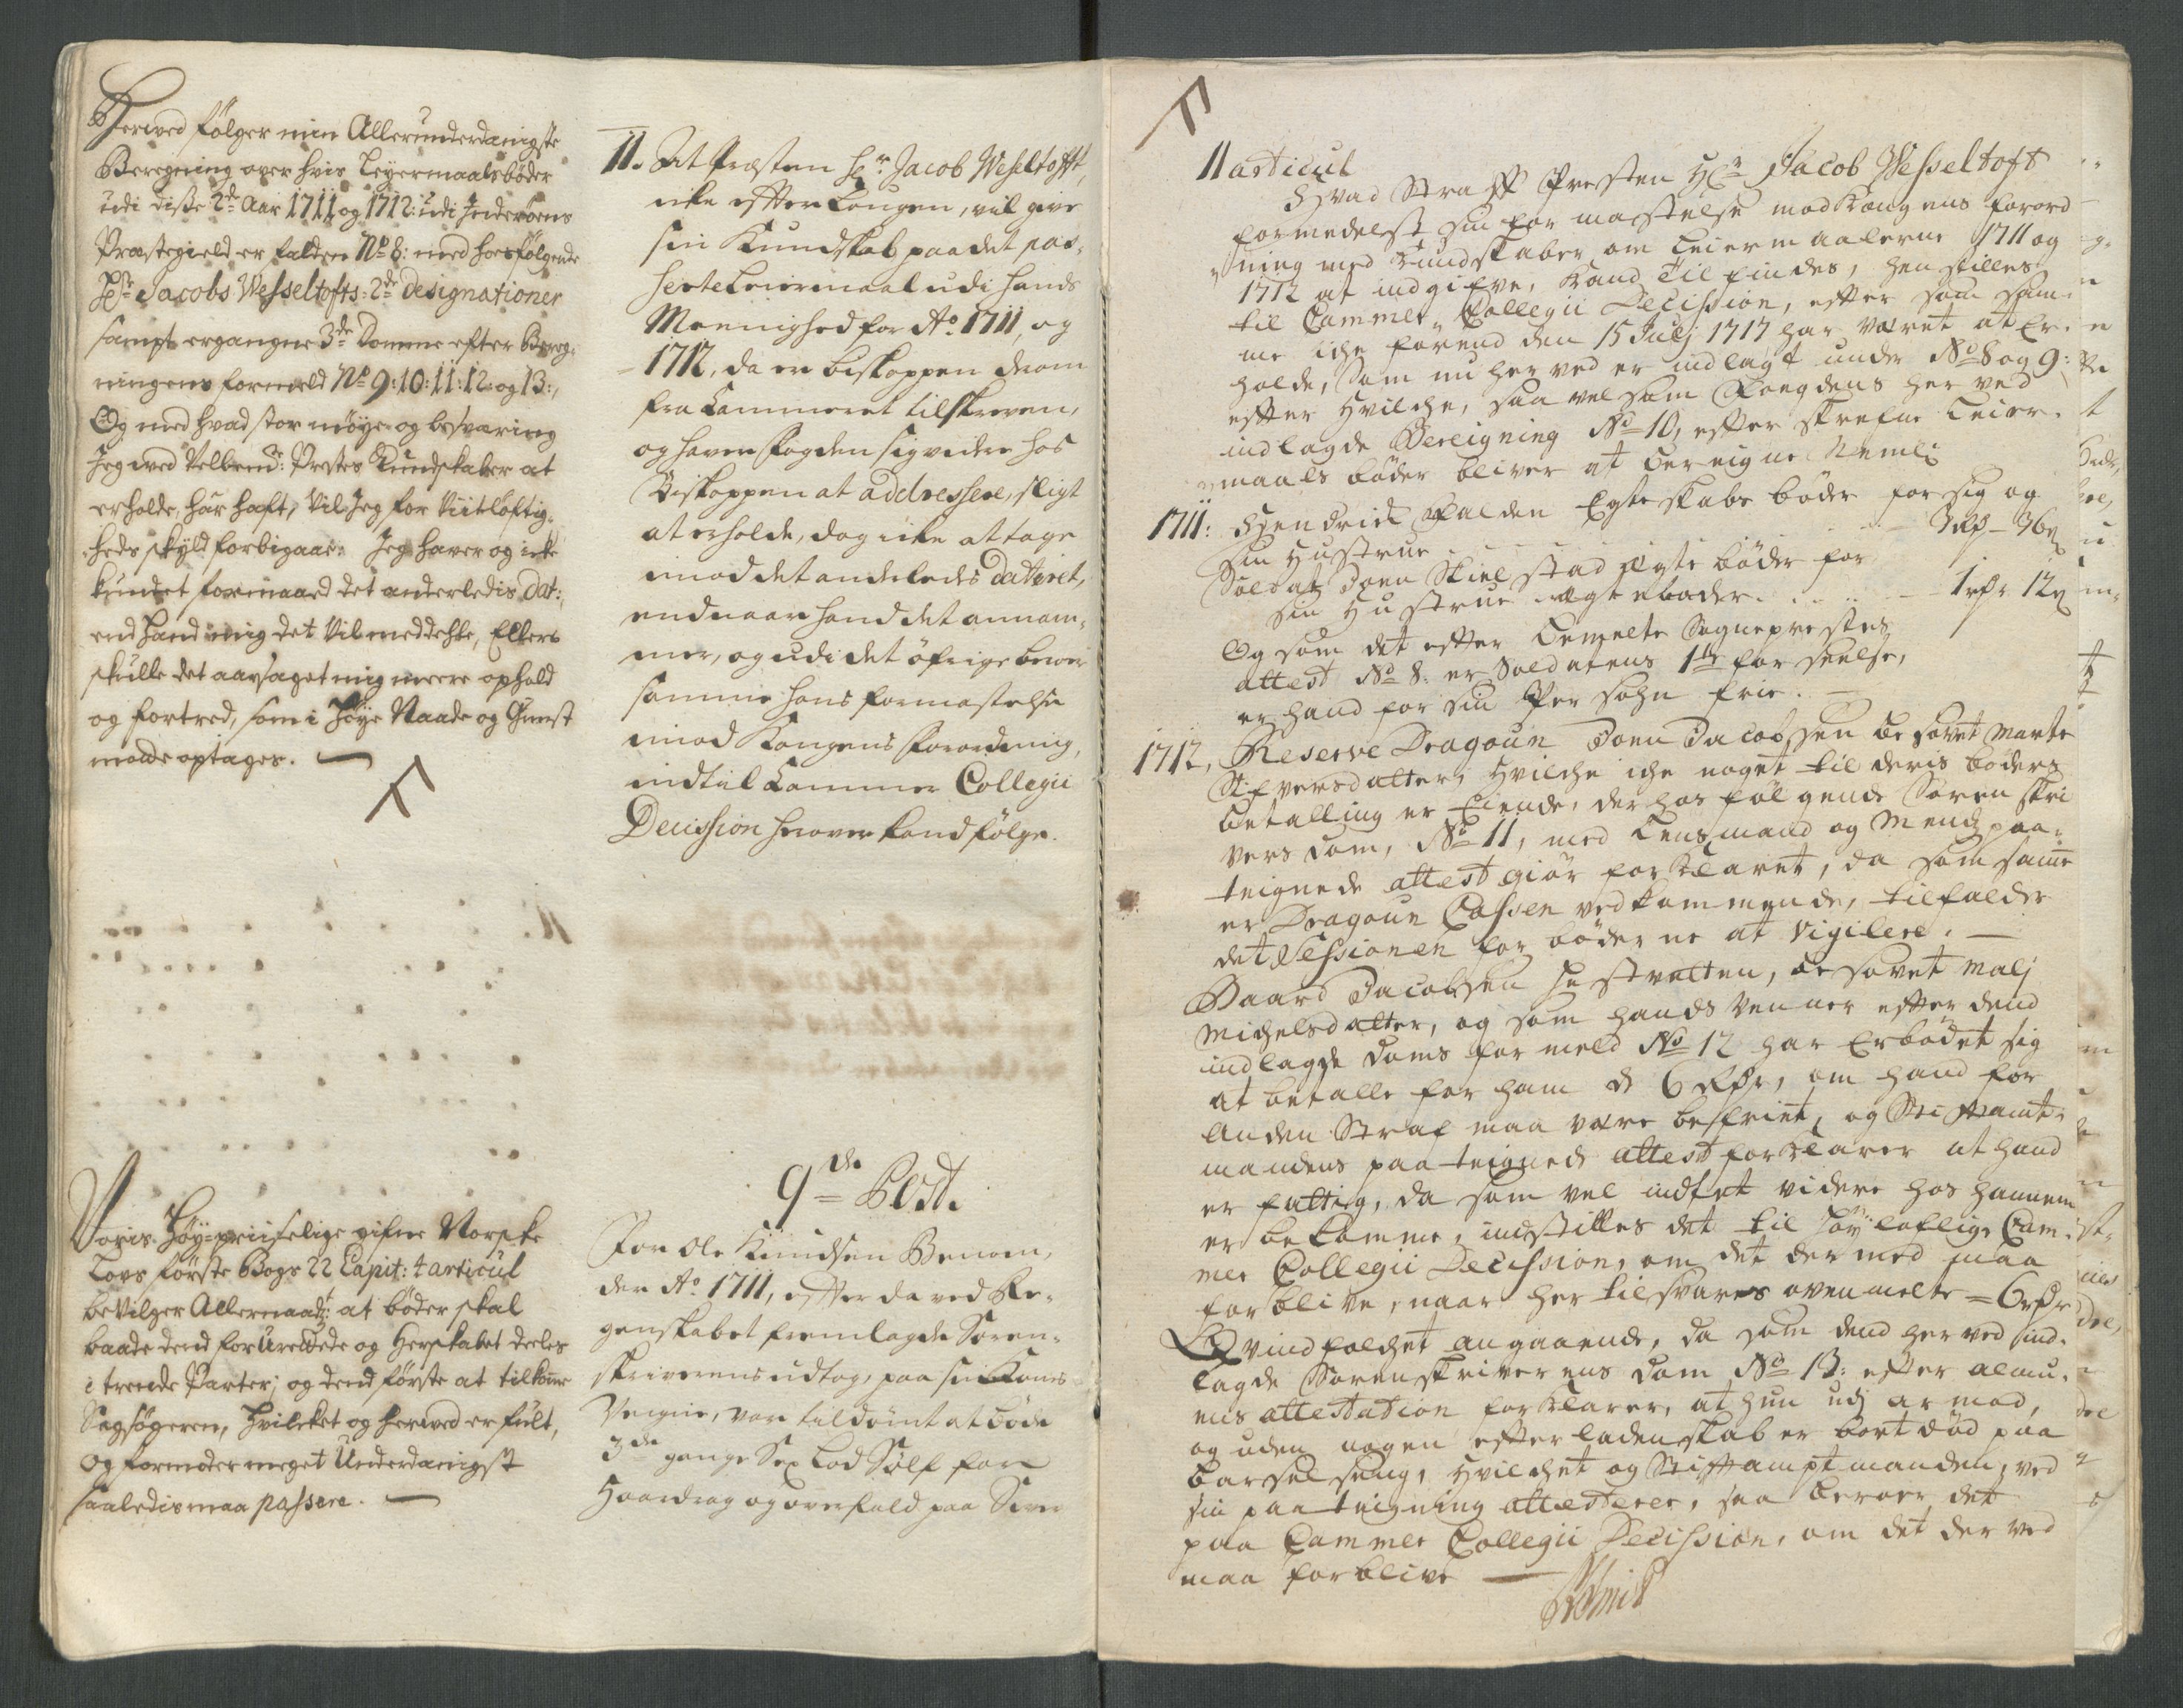 Herved følger min Allerunderdanigste
Beregning over hvis Leyermaalsbøder
udi disse 2de Aar 1711 og 1712: udi Inderøens
Præstegield er falden No 8: med hosfølgende
Hr Jacobs Wesseltofts: 2de Designationer
sampt ergangne 3de Domme efter Bereg-
ningens formeld No 9: 10: 11: 12: og 13:,
Og med hvad stor møye og besværing
Jeg ved Velbemte: Prestes Kundskaber at
erholde, har haft, vil Jeg for Viitløftig-
heds skyld forbigaae: Jeg haver og icke
kundet formaaed det anderledis Dat:,
end hand mig det vil meddehle, Ellers
skulle det aarsaget mig meere ophold
og fortred, som i Høye Naade og Gunst
motte optages. —
Voris Høy-priiselige gifne Norske
Lovs første Bogs 22 Capit: 4 articul
bevilger Allernaadt: at bøder skal
baade dend forurettede og Herskabet deeles
i trende Parter; og dend første at tilkome
Sagsøgeren, Hvileket og herved er fult,
og formoder meget Underdanigst
saaledis maa passere. —
11. At Præsten Hr Jacob Weseltofft,
icke effter Lougen, vil give
sin Kundskab paa det pas-
serte Leiermaal udi Hands
Meenighed for Ao 1711, og
1712, da er biskoppen derom
fra Cammeret tilskreven,
og haver Fogden sig videre hos
Biskoppen at addressere, sligt
at erholde, dog icke at tage
imod det anderledes dateret,
end naar hand det annam-
mer, og udi det øfrige beroer
samme hans formastelse
imod Kongens Forordning,
indtil Cammer Collegii
Decission herover kand følge.
9de Post.
For Ole Knudsen Benom,
der Ao 1711, effter da ved Re-
genskabet fremlagde Soren-
skriverens udtog, paa sin Kones
Vegne, var tildømt at bøde
3de gange Sex Lod Sølf for
Haardrag og overfald paa Siver
11 articul
Hvad Straff Presten Hr Jacob Wesseltoft
formedelst sin formastelse mod Kongens forord
ning med Kundskaber om Leiermaalerne 1711 og
1712 at indgifve, kand tilfindes, henstilles
til Cammer Collegii Decission, efter som sam-
me iche førend den 15 Julj 1717 har været at Er-
holde, Som nu her ved er indlagt under No 8 og 9:
efter hvilche, saavelsom Fogdens her ved
indlagde Bereigning No 10, efter skrefne Leier-
maals bøder bliver at bereigne Nemlig
1711: Hendrich Falden Egteskabs bøder for sig og
sin Hustrue . . . . . 3 Rd - 36 s
Soldat Joen Skielstad Egte bøder for
sin Hustrue Egtebøder . . . . . 1 rdr 12 s
Og som det efter bemelte Sogneprestes
attest No 8: er Soldatens 1te forseelse,
er hand for sin Persohn frie. —
1712, Reserve Dragoun Joen Jacobsen besovet Marte
Sifversdatter, hvilche iche noget til deris bøders
betalling er Eiende, der hos følgende Sorenskri
vers dom, No 11, med Lensmand og Mendz paa-
teignede attest giør forklaret, da som same
er Dragoun Cassen vedkommende, tilfalder
det Sessionen for bøderne at vigilere. —
Baard Jacobsen Hustretten, besovet Malj
Michelsdatter, og som hands Venner efter dend
indlagde doms formeld No 12 har Erbødet sig
at betalle for ham de 6 Rdr, om hand for
anden Straf maa være befriet, og Stiftamt-
mandens paateigned attest forklarer at hand
er fattig, da som vel indtet videre hos hannem
er bekomme, indstilles det til Høyloflige Cam-
mer Collegii Decission, om det der med maa
forblive, naar her tilsvares ovenmelte = 6 rdr
Qvindfolchet angaaende, da som dend her ved ind-
lagde Sorenskriverens dom No 13: efter almu-
ens attestation forklarer, at hun udj armod,
og uden nogen efterladenskab er bort død paa
barselseng, hvilchet og Stiftamptmanden, ved
sin paateigning attesterer, saa beroer det
paa Cammer Collegii Decission, om det der ved
maa forblive —